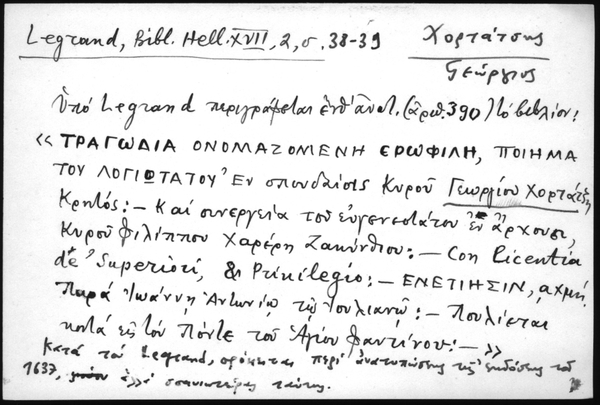 Legrand, Bibl. Hell. XVII, 2, σ. 38-39
Χορτάτσης
Γεώργιος
Ὑπό Legrand περιγράφεται ἐνθ' ἀνωτ. (ἀριθ. 390) τό βιβλίον:
«ΤΡΑΓΩΔΙΑ ΟΝΟΜΑΖΟΜΕΝΗ ΕΡΩΦΙΛΗ, ΠΟΙΗΜΑ
ΤΟΥ ΛΟΓΙΩΤΑΤΟΥ Ἐν σπουδαίοις Κυροῦ Γεωργίου Χορτάτζη
Κρητός:— Καί συνεργεία τοῦ εὐγενεστάτου ἐν ἄρχουσι,
Κυροῦ Φιλίππου Χαρέρη Ζακύνθιου:— Con Licentia
de' Superiori, & Privilegio:— ΕΝΕΤΙΗΣΙΝ, ͵αχμή.
Παρά Ἰωάννῃ Ἀντωνίῳ τῷ Ἰουλιανῷ:— Πουλιέται
κατά εἰς τόν Πόντε τοῦ Ἁγίου Φαντίνου:—»
Κατά τόν Legrand, πρόκειται περί ἀνατυπώσεως τῆς ἐκδόσεως τοῦ
1637, ἀλλά σπανιωτέρας ταύτης.